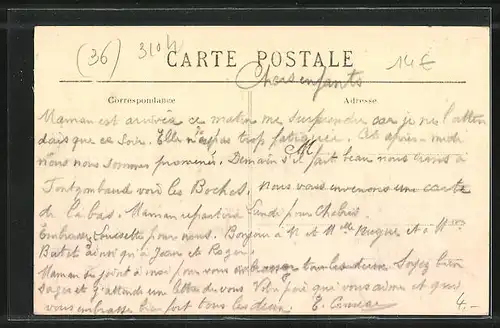 (36) 3104 14€
CARTE POSTALE
Chers enfants
Correspondance Adresse
Maman est arrivée ce matin me surprendre car je ne l'atten
dais que ce soir. Elle n'est pas trop fatiguée. Cet après-midi
nous nous sommes promenés. Demain s'il fait beau nous irons à
Fontgombaud voir les Boches. Nous vous enverrons une carte
de là bas. Maman repartira Lundi pour Chabris.
Embrassez Suzette pour nous. Bonjour à M et Mlle et à Mme
ainsi qu'à Jean et Roger.
Maman se joint à moi pour vous embrasser tous les deux. Soyez bien
sages et j'attends une lettre de vous. Votre père qui vous aime et qui
vous embrasse bien fort tous les deux. E.
4.-